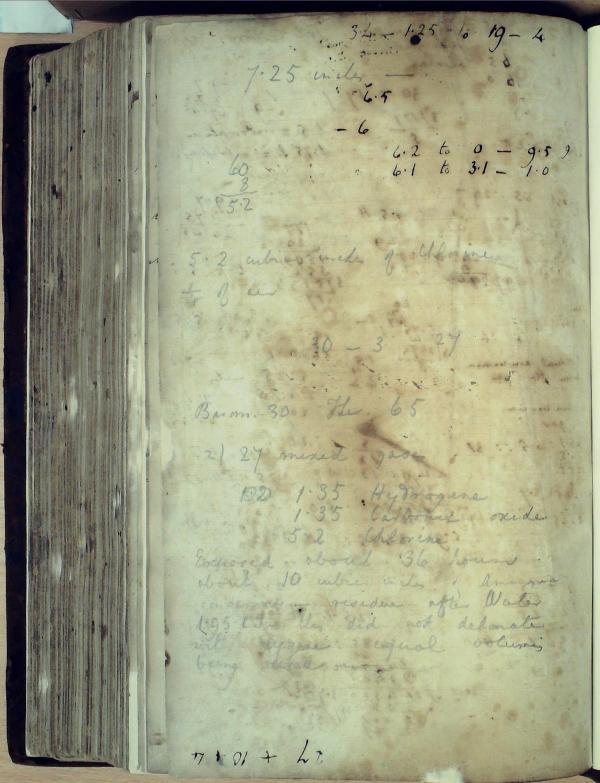 34 - 1.25 to 19 - 4
7.25 inches —
6.5
- 6
6.2 to 0 - 9.5
6.1 to 3.1 - 1.0
60
8
5.2
5.2 cubic inches of Chlorine
of air
30 - 3 27
Barom. 30 Ther. 65
2) 27 mixed gases
1.35 Hydrogene
1.35 Carbonic oxide
5.2 Chlorine
Exposed about 36 hours
about 10 cubic inches Ammonia
residue after Water
1.95 this did not detonate
with oxygene equal volumes
being